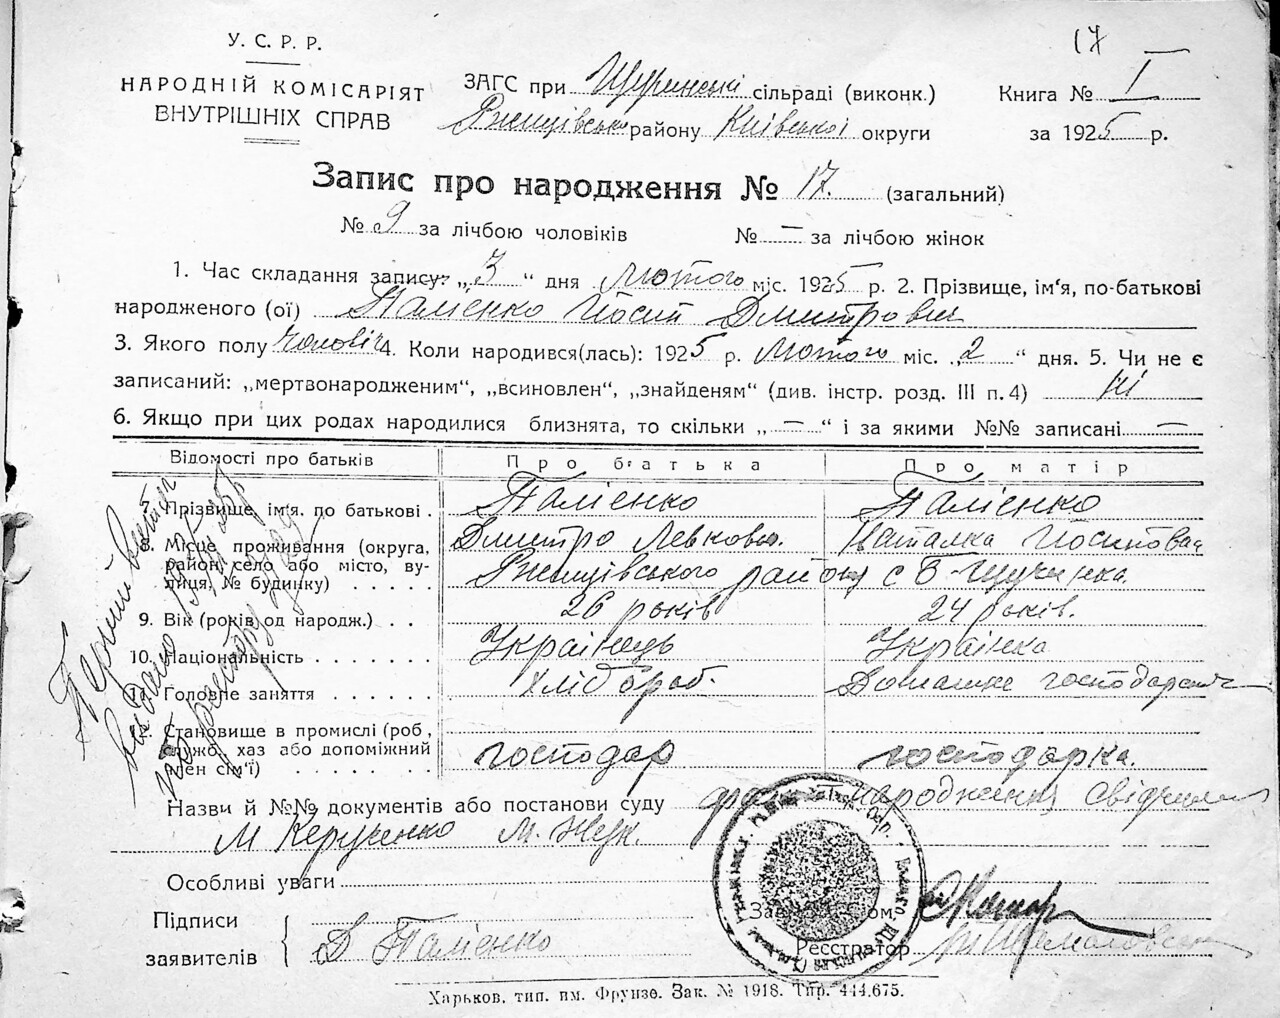 17
У. С. Р. Р.
НАРОДНІЙ КОМІСАРІЯТ
ВНУТРІШНІХ СПРАВ
ЗАГС при Щучинські сільраді (виконк.)
Ржищівсько району Київської округи
Книга № I
за 1925 р.
Запис про народження № 17. (загальний)
№ 9 за лічбою чоловіків № — за лічбою жінок
1. Час складання запису: „3“ дня Лютого міс. 1925 р. 2. Прізвище, ім‘я, по-батькові
народженого (ої) Палієнко Йосип Дмитрович
3. Якого полу чоловіч 4. Коли народився(лась): 1925 р. Лютого міс. „2“ дня. 5. Чи не є
записаний: „мертвонародженим“, „всиновлен“, „знайденям“ (див. інстр. розд. III п. 4) ні
6. Якщо при цих родах народилися близнята, то скільки „—“ і за якими №№ записані —
Відомості про батьків Про батька Про матір
7. Прізвище, ім‘я. по батькові . Палієнко Палієнко
Дмитро Левкович. Наталка Йосиповна
8. Місце проживання (округа,
район, село або місто, ву-
лиця, № будинку) . . . . Ржищівського району с Б-Щучинка.
9. Вік (років од народж.) . . . 26 років 24 років.
10. Національність . . . . . . . Українець Українка
11. Головне заняття . . . . . . хлібороб. Домашнє господарств
12. Становище в промислі (роб,
служб. хаз або допоміжний
член сім‘ї) . . . . . . господар господарка.
Назви й №№ документів або постанови суду народження свідчили
М Керученко М. Жук.
Особливі уваги
Підписи
заявителів
Д Палієнко
Зав. ЗАГС‘ом
Реєстратор
Перший
видано
по реєстру
Харьков, тип. им. Фрунзе. Зак. № 1918. Тир. 444.675.